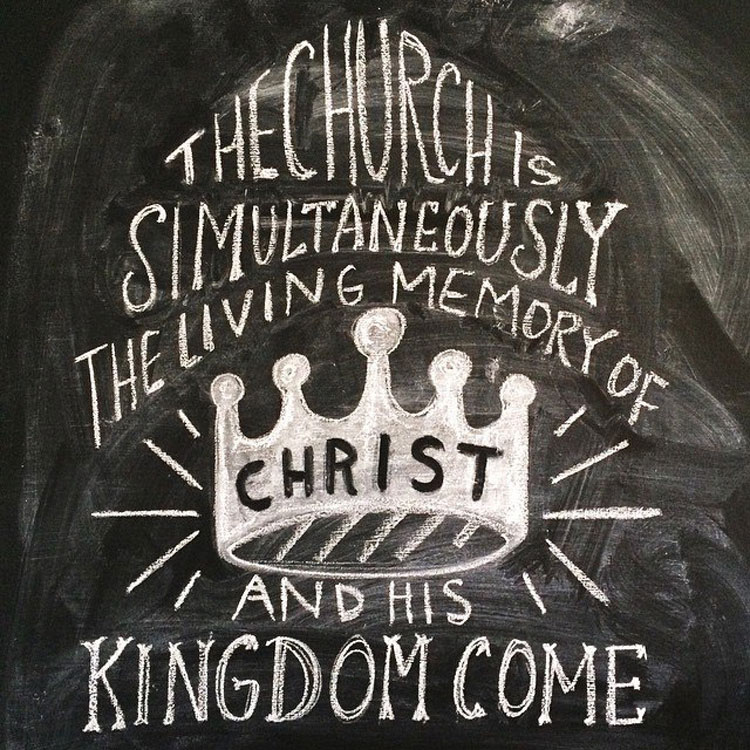 THE CHURCH IS
SIMULTANEOUSLY
THE LIVING MEMORY OF
CHRIST
AND HIS
KINGDOM COME